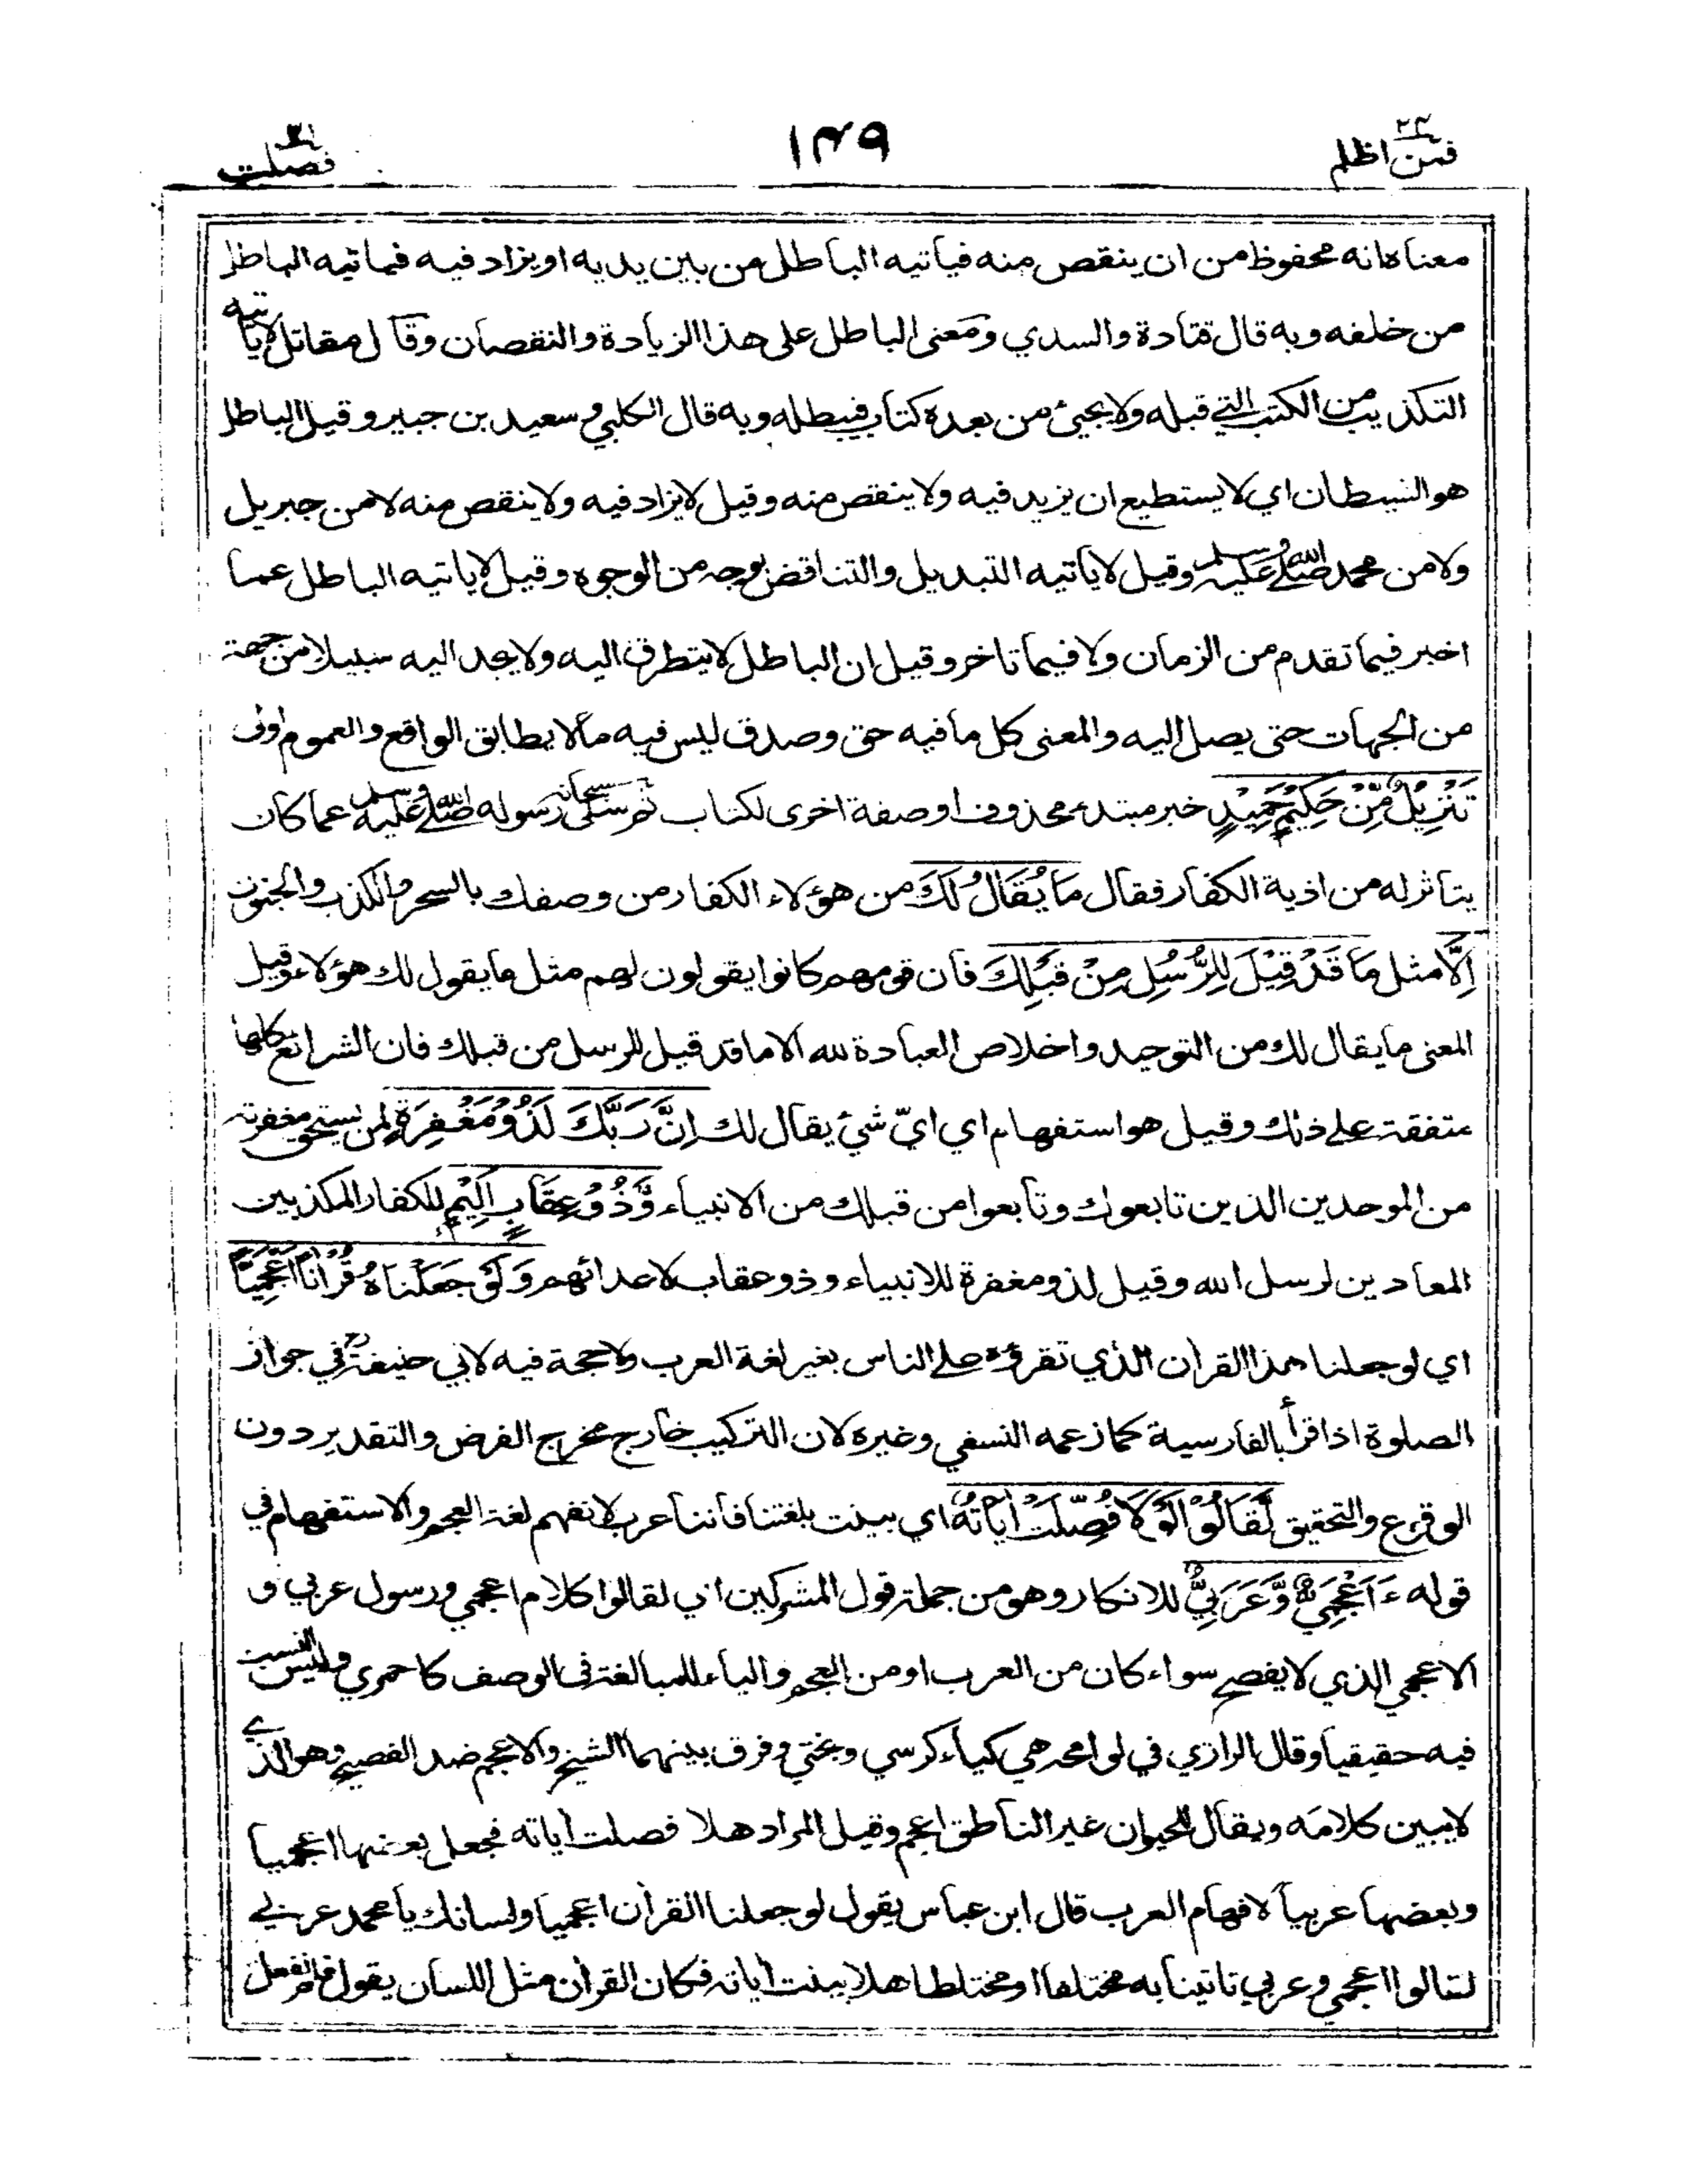 فمن اظلم ٢٤
١٤٩
فصلت ٤١
معناه انه محفوظ من ان ينقص منه فياتيه الباطل من بين يديه او يزاد فيه فياتيه الباطل
من خلفه وبه قال قتادة والسدي ومعنى الباطل على هذا الزيادة والنقصان وقال مقاتل لا ياتيه
التكذيب من الكتب التي قبله ولا يجيئ من بعده كتاب فيبطله وبه قال الكلبي وسعيد بن جبير وقيل الباطل
هو الشيطان اي لا يستطيع ان يزيد فيه ولا ينقص منه وقيل لا يزاد فيه ولا ينقص منه لا من جبريل
ولا من محمد صلى الله عليه وسلم وقيل لا ياتيه التبديل والتناقض بوجه من الوجوه وقيل لا ياتيه الباطل عما
اخبر فيما تقدم من الزمان ولا فيما تاخر وقيل ان الباطل لا يتطرق اليه ولا يجد اليه سبيلا من جهة
من الجهات حتى يصل اليه والمعنى كل ما فيه حق وصدق ليس فيه ما لا يطابق الواقع والعموم اولى
تَنْزِيْلٌ مِّنْ حَكِيْمٍ حَمِيْدٍ خبر مبتدء محذوف او صفة اخرى لكتاب ثم سلى سبحانه رسوله صلى الله عليه وسلم عما كان
يتاثر له من اذية الكفار فقال مَا يُقَالُ لَكَ من هؤلاء الكفار من وصفك بالسحر والكذب والجنون
اِلَّا مثل مَا قَدْ قِيْلَ لِلرُّسُلِ مِنْ قَبْلِكَ فان قومهم كانوا يقولون لهم مثل ما يقول لك هؤلاء وقيل
المعنى ما يقال لك من التوحيد واخلاص العبادة لله الا ما قد قيل للرسل من قبلك فان الشرائع كلها
متفقة على ذلك وقيل هو استفهام اي ايّ شئ يقال لك اِنَّ رَبَّكَ لَذُوْ مَغْفِرَةٍ لمن يستحق مغفرته
من الموحدين الذين تابعوك وتابعوا من قبلك من الانبياء وَّذُوْ عِقَابٍ اَلِيْمٍ للكفار المكذبين
المعادين لرسل الله وقيل لذو مغفرة للانبياء وذو عقاب لاعدائهم وَلَوْ جَعَلْنَاهُ قُرْاٰنًا اَعْجَمِيًّا
اي لو جعلنا هذا القران الذي تقرؤه على الناس بغير لغة العرب ولا حجة فيه لابي حنيفة رح في جواز
الصلوة اذا قرأ بالفارسية كما زعمه النسفي وغيره لان التركيب خارج مخرج الفرض والتقدير دون
الوقوع والتحقيق لَّقَالُوْا لَوْلَا فُصِّلَتْ اٰيَاتُهٗ اي بينت بلغتنا فاننا عرب لا نفهم لغة العجم والاستفهام في
قوله ءَاَعْجَمِيٌّ وَّعَرَبِيٌّ للانكار وهو من جملة قول المشركين اي لقالوا كلام اعجمي ورسول عربي و
الاعجمي الذي لا يفصح سواء كان من العرب او من العجم والياء للمبالغة في الوصف كاحمري وليس النسب
فيه حقيقيا وقال الرازي في لوامحه هي كياء كرسي وبختي وفرق بينهما الشيخ والاعجم ضد الفصيح وهو الذي
لا يبين كلامه ويقال للحيوان غير الناطق اعجم وقيل المراد هلا فصلت اٰياته فجعل بعضها اعجميا
وبعضها عربيا لافهام العرب قال ابن عباس يقول لو جعلنا القرأن اعجميا ولسانك يا محمد عربي
لقالوا اعجمي وعربي تاتينا به مختلفا او مختلطا هلا بينت اٰياته فكان القرأن مثل اللسان يقول فلم نفعل